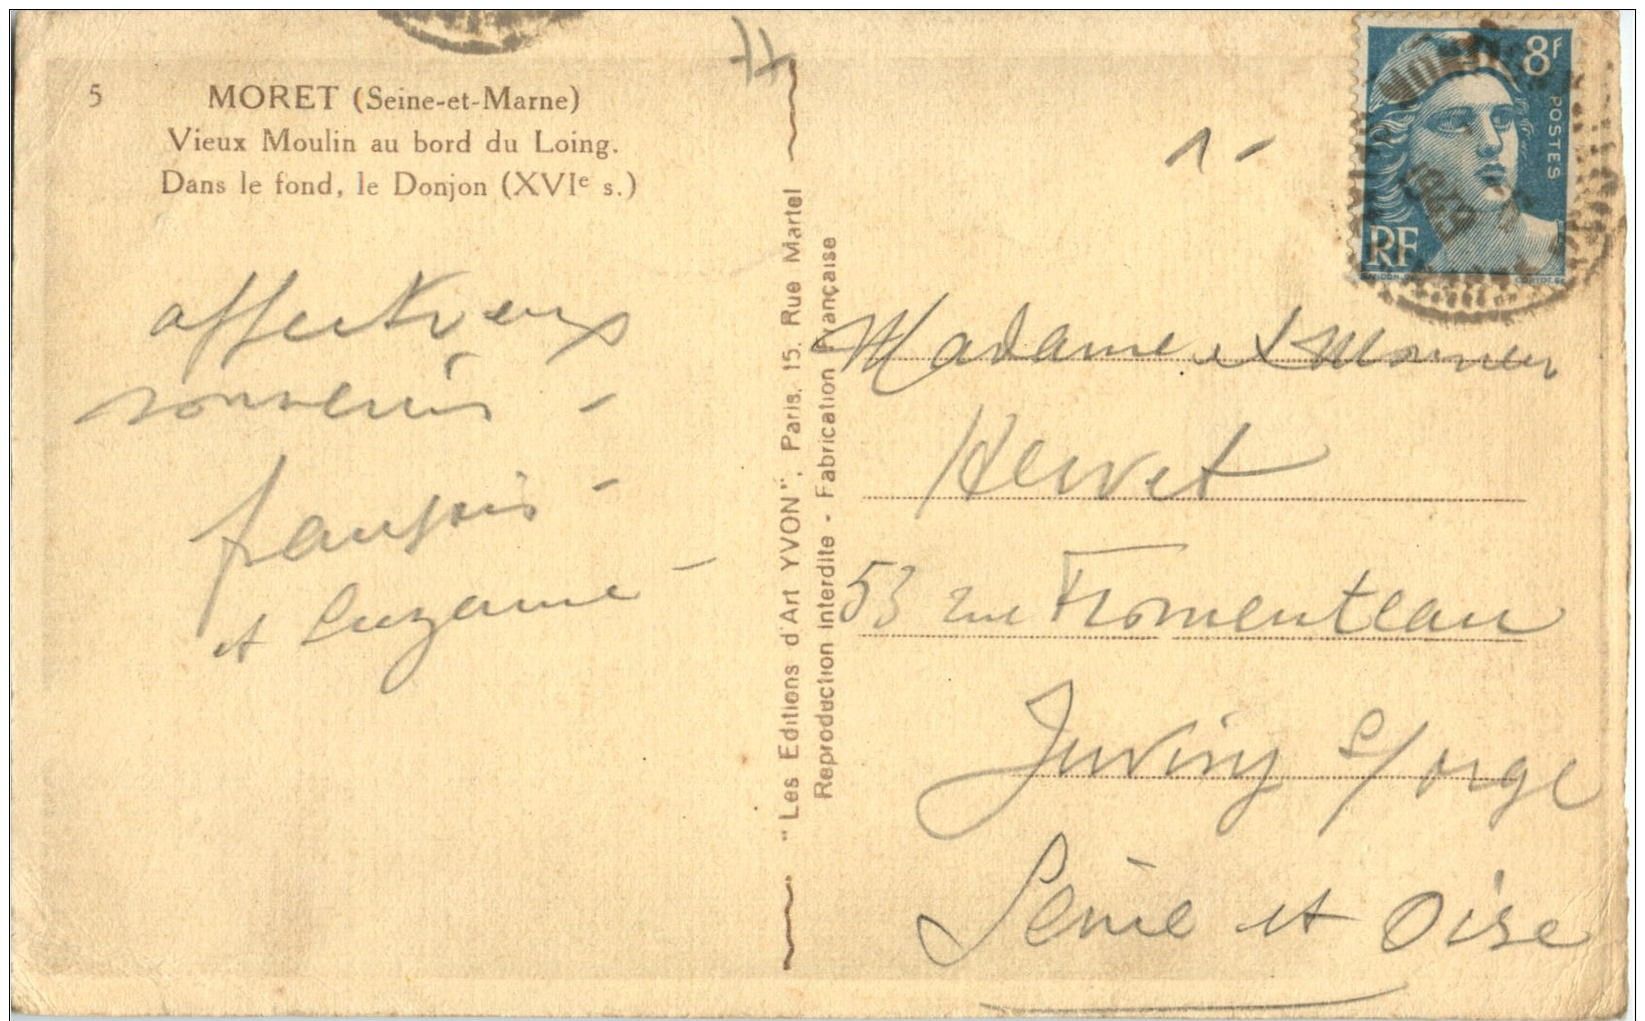 77
5 MORET (Seine-et-Marne)
Vieux Moulin au bord du Loing.
Dans le fond, le Donjon (XVIe s.)
affectueux
souvenirs -
françois -
et Suzanne -
"Les Editions d'Art YVON", Paris. 15, Rue Martel
Reproduction Interdite - Fabrication Française
1 -
8F
POSTES
RF
Madame et Monsieur
Hervet
53 rue Fromenteau
Juvisy s/orge
Seine et Oise